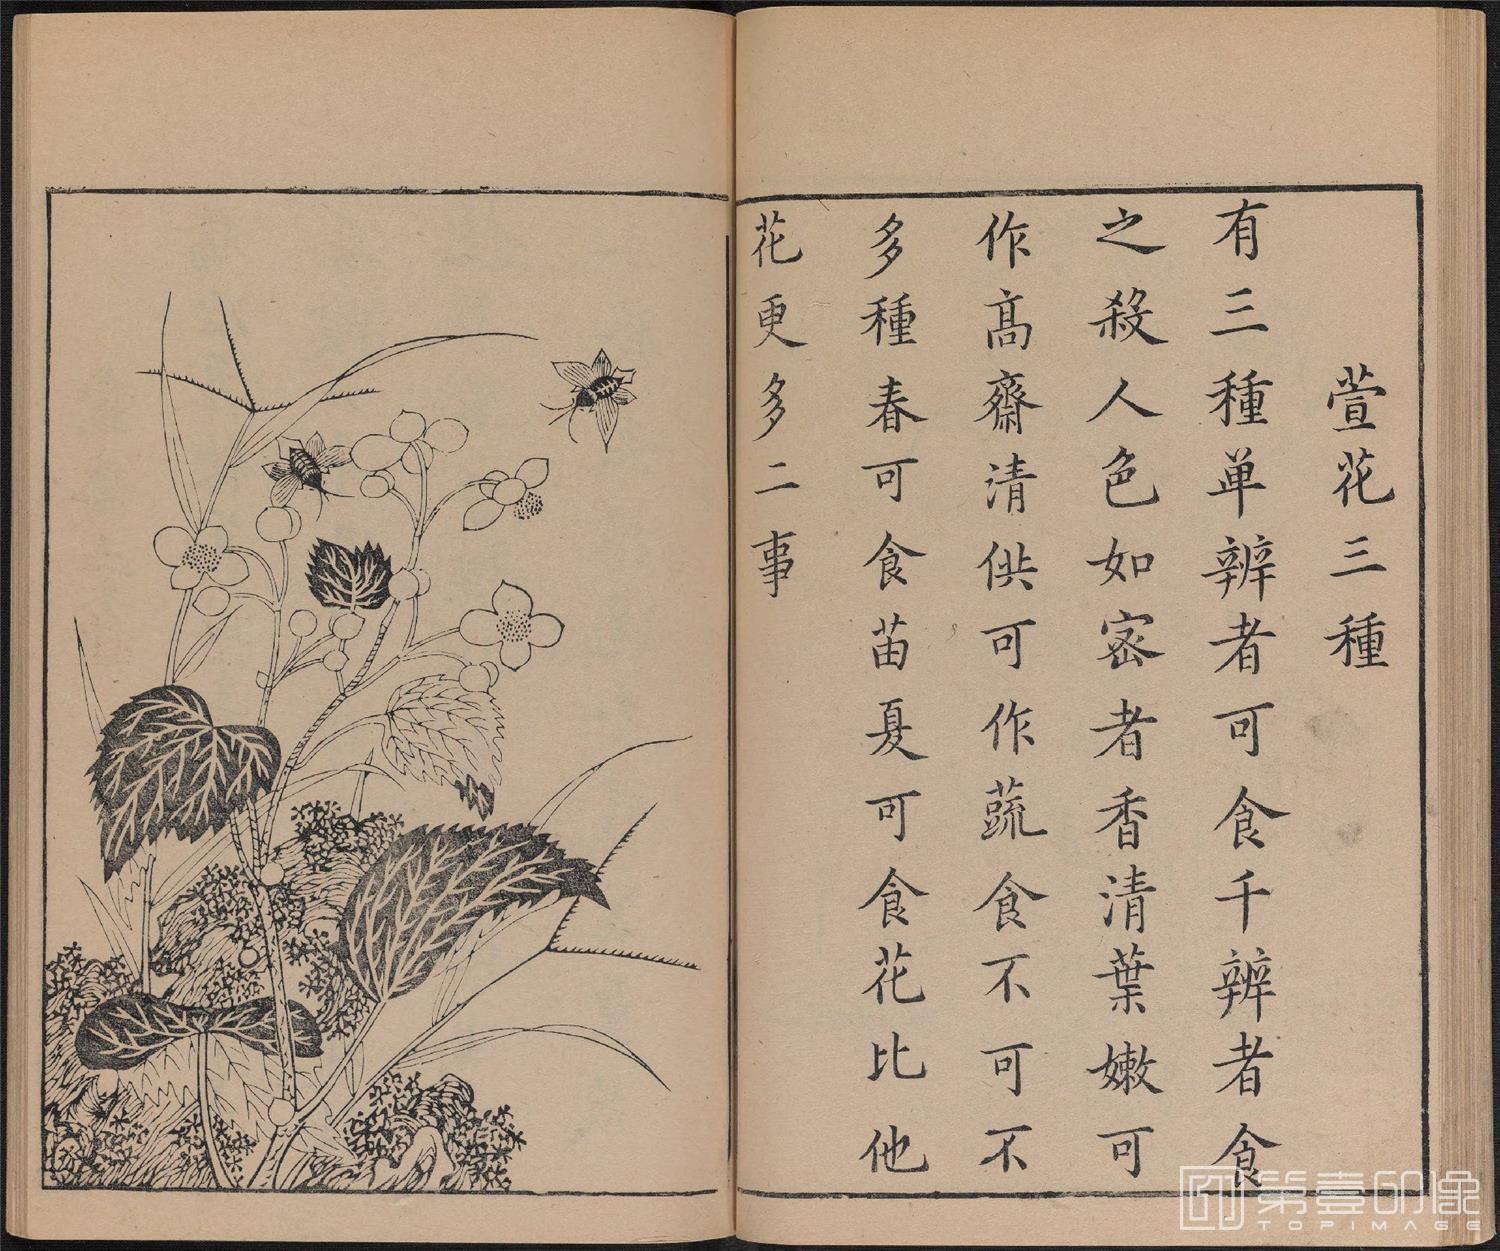 萱花三種
有三種単辨者可食千辨者食
之殺人色如宻者香清葉嫩可
作髙齋清供可作蔬食不可不
多種春可食苗夏可食花比他
花更多二事
第壹印像
TOPIMAGE